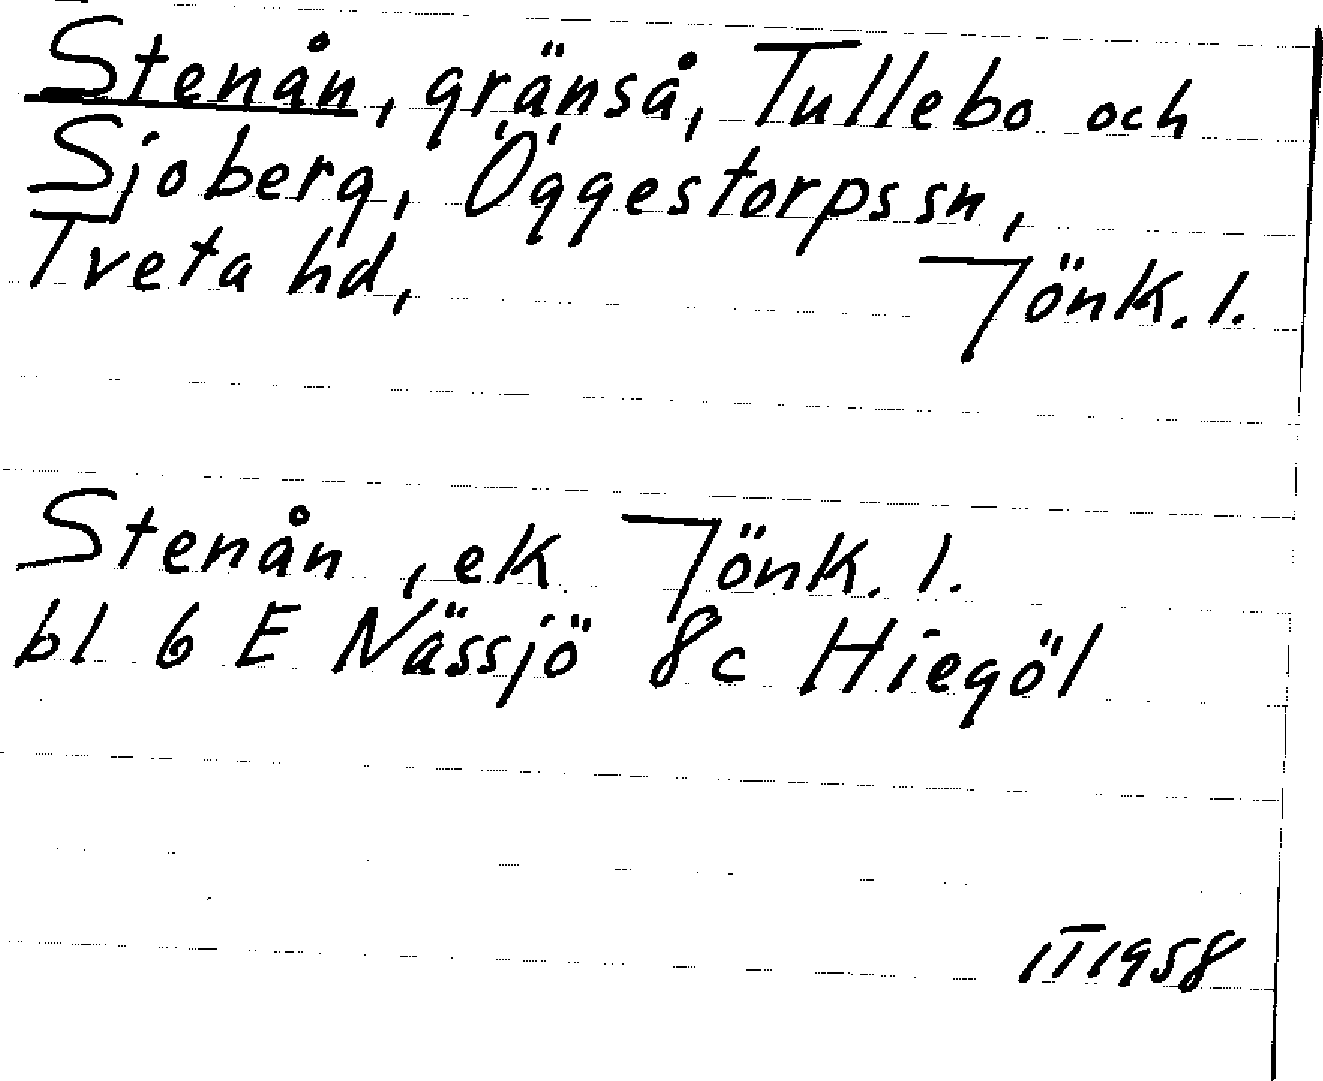 Stenån, gränså, Tullebo och
Sjoberg, Öggestorps sn,
Tveta hd, Jönk. l.
Stenån, ek Jönk. l.
bl 6 E Nässjö 8c Hiegöl
IT1958